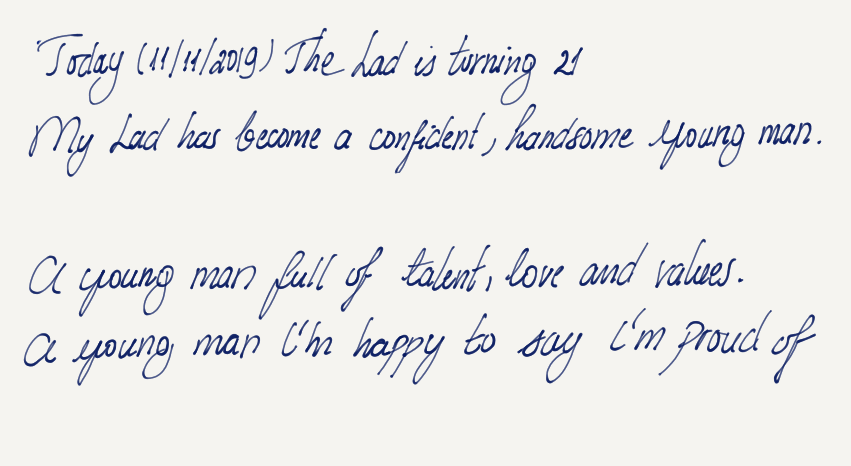 Today (11/11/2019) The Lad is turning 21
My Lad has become a confident, handsome young man.
A young man full of talent, love and values.
A young man I'm happy to say I'm proud of